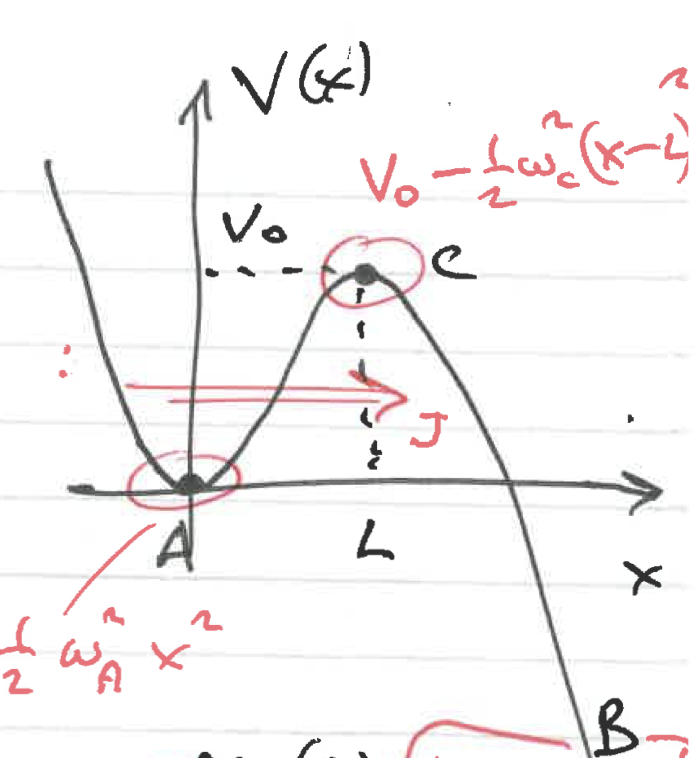 V(x)
V₀ − ½ω_c²(x−L)²
V₀
C
J
A
L
x
½ ω_A² x²
B